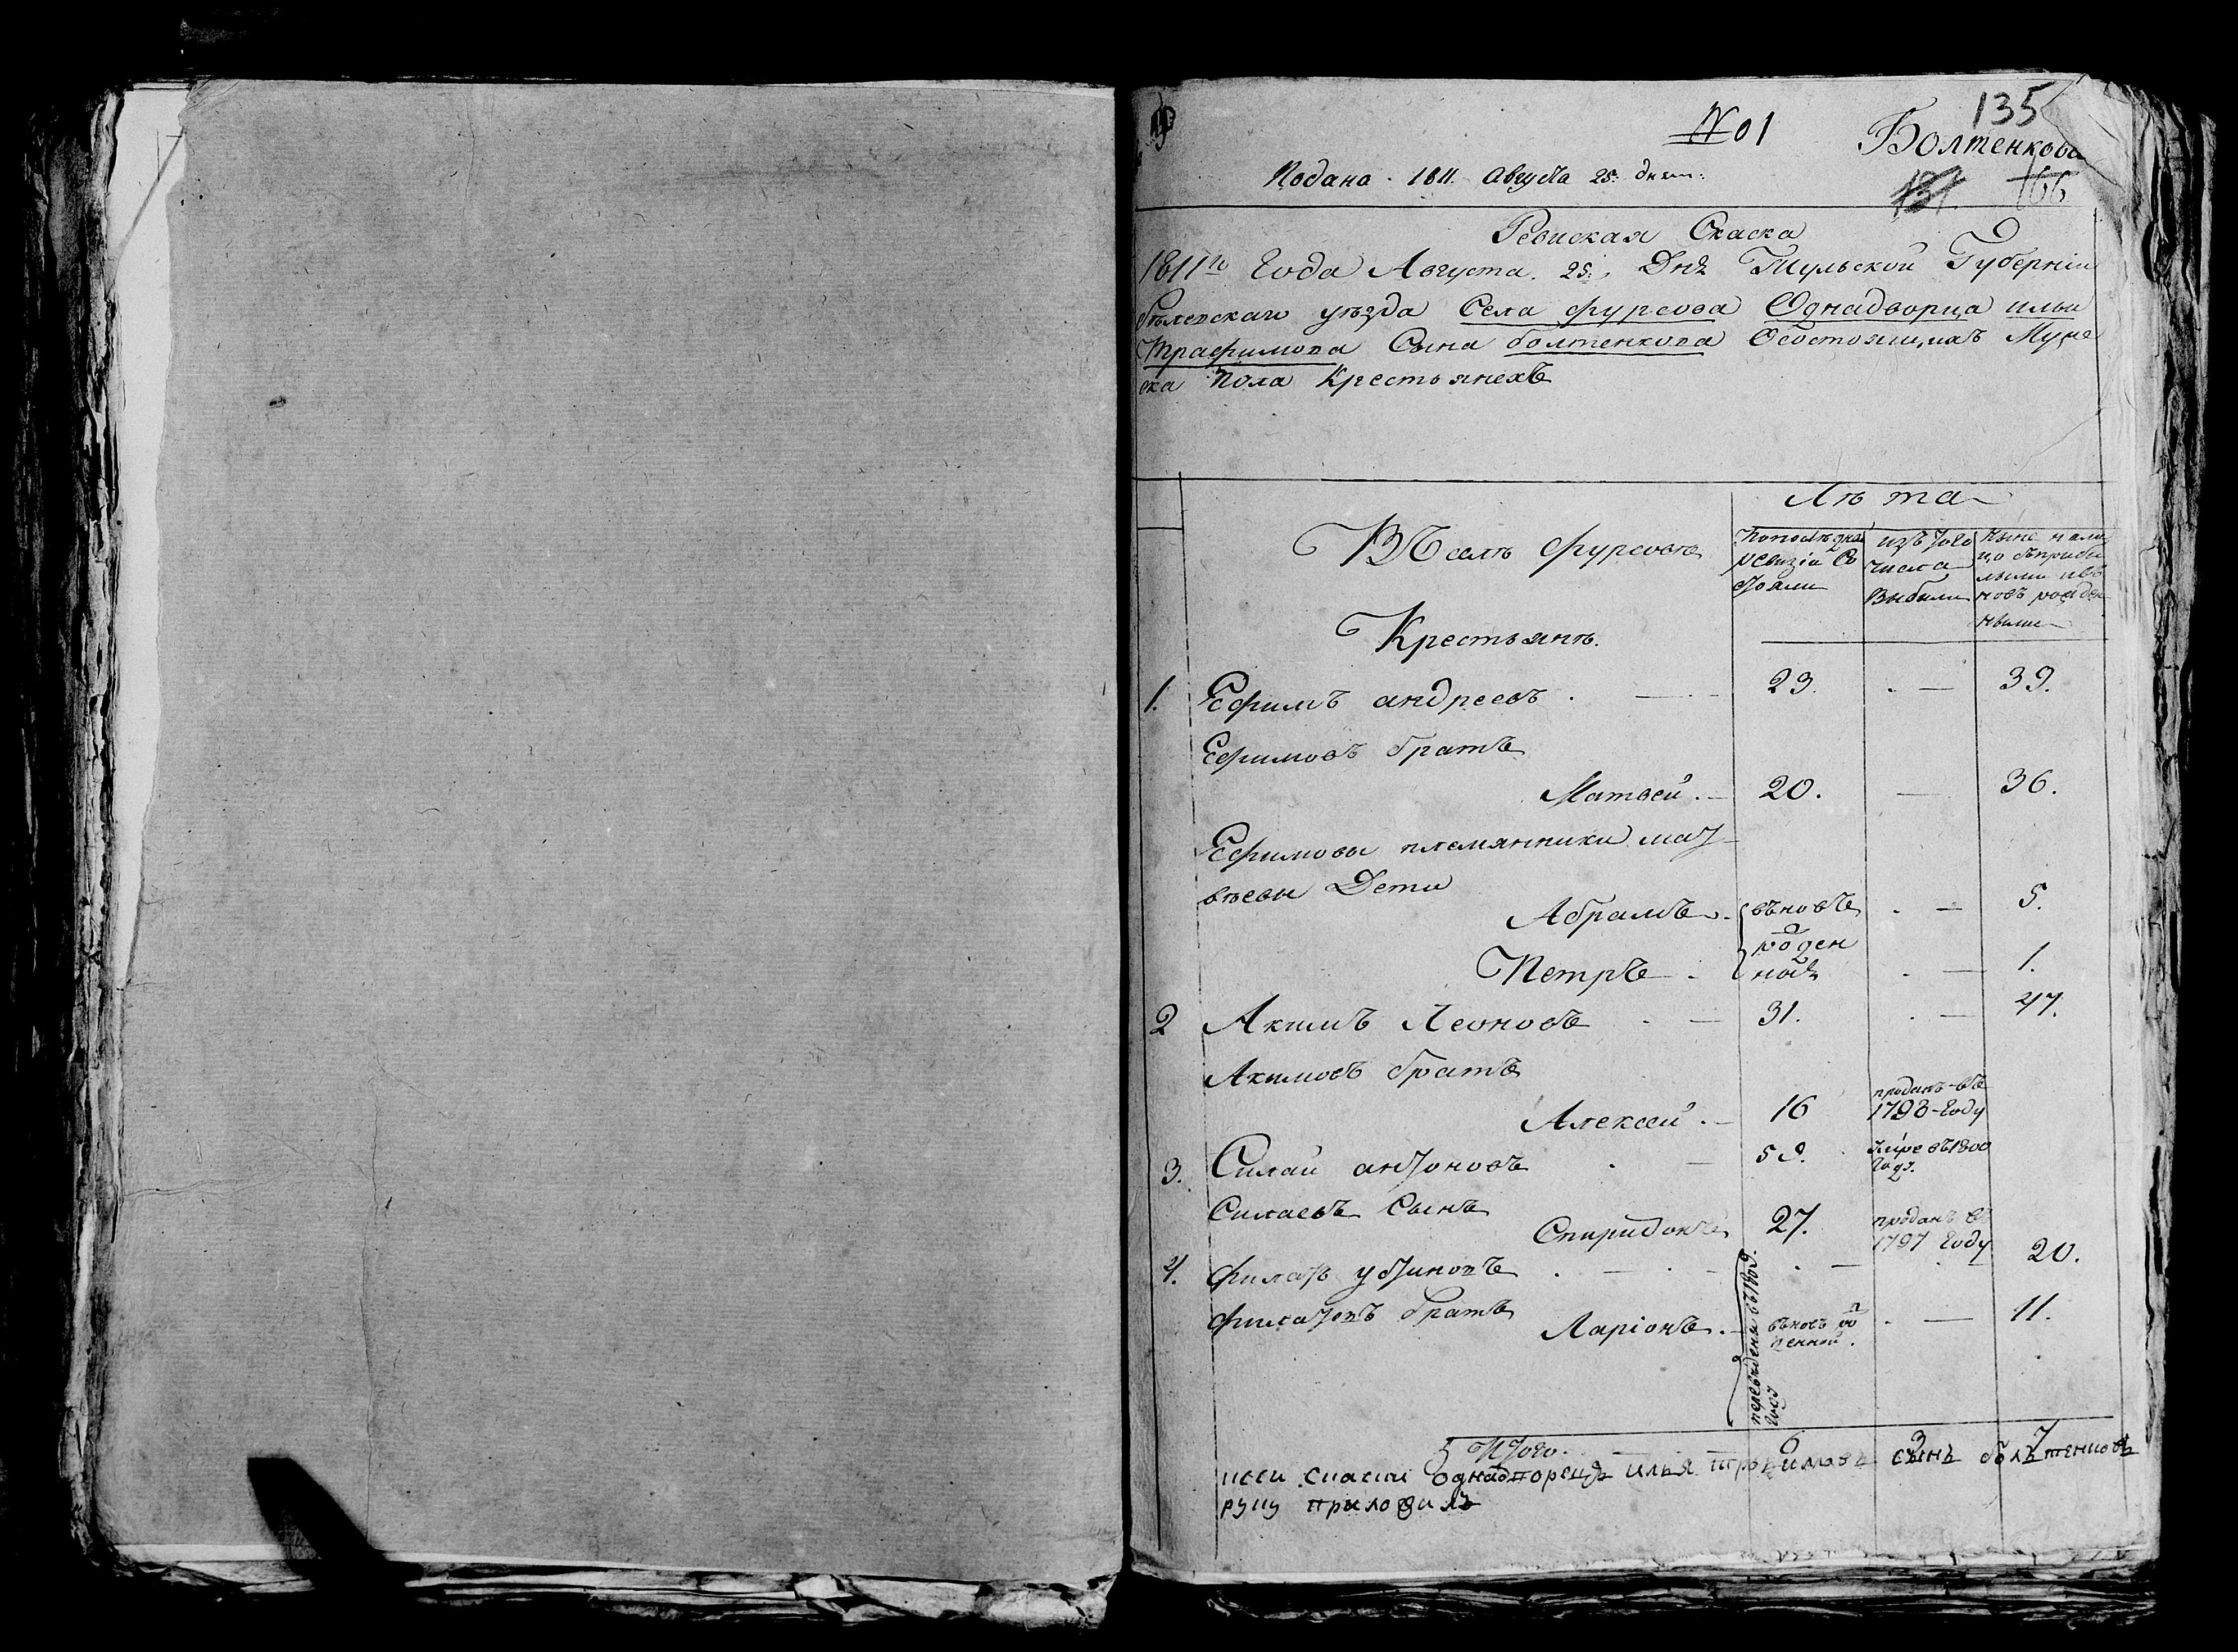 135
№ 01
Болтенкова
Подана. 1811. Августа 25. дня:
166
Ревиская Скаска
1811го Года Августа. 25. Дня Тульской Губерніи
бѣлевскаго уѣзда Села фурсова Однадворца ильи
Трафимова Сына болтенкова Осостоящихъ Муже
ска пола Крестьянехъ
Лѣта
ВСелѣ фурсовѣ
Крестьянъ.
Попоследней ревизіи Состояли
изъ того числа Выбыли
Ныне налицо
1. Ефимъ андреевъ . — 23. . — 39.
Ефимовъ братъ
Матвей . — 20. — 36.
Ефимовы племянники мат
вѣевы Дети
Абрамъ . вьновь . — 5.
рожден
Петръ . ной . — 1.
2 Акимъ Леоновъ . — 31. . — 47.
Акимовъ братъ
Алексей . — 16 проданъ въ 1798 Году
3. Силай антоновъ . — 58. Умре въ 1800 Году.
Силаевъ Сынъ
Спиридонъ 27. проданъ въ 1797 Году
4. филатъ устиновъ . — . — . — 20.
филатовъ братъ
Ларіонъ . — вьновь рожденной . . — 11.
переведены въ 1809. году
Итого . — 6 3 7
ксеи скаски однадворецъ илья трафимовъ сынъ болтенковъ
руку приложилъ